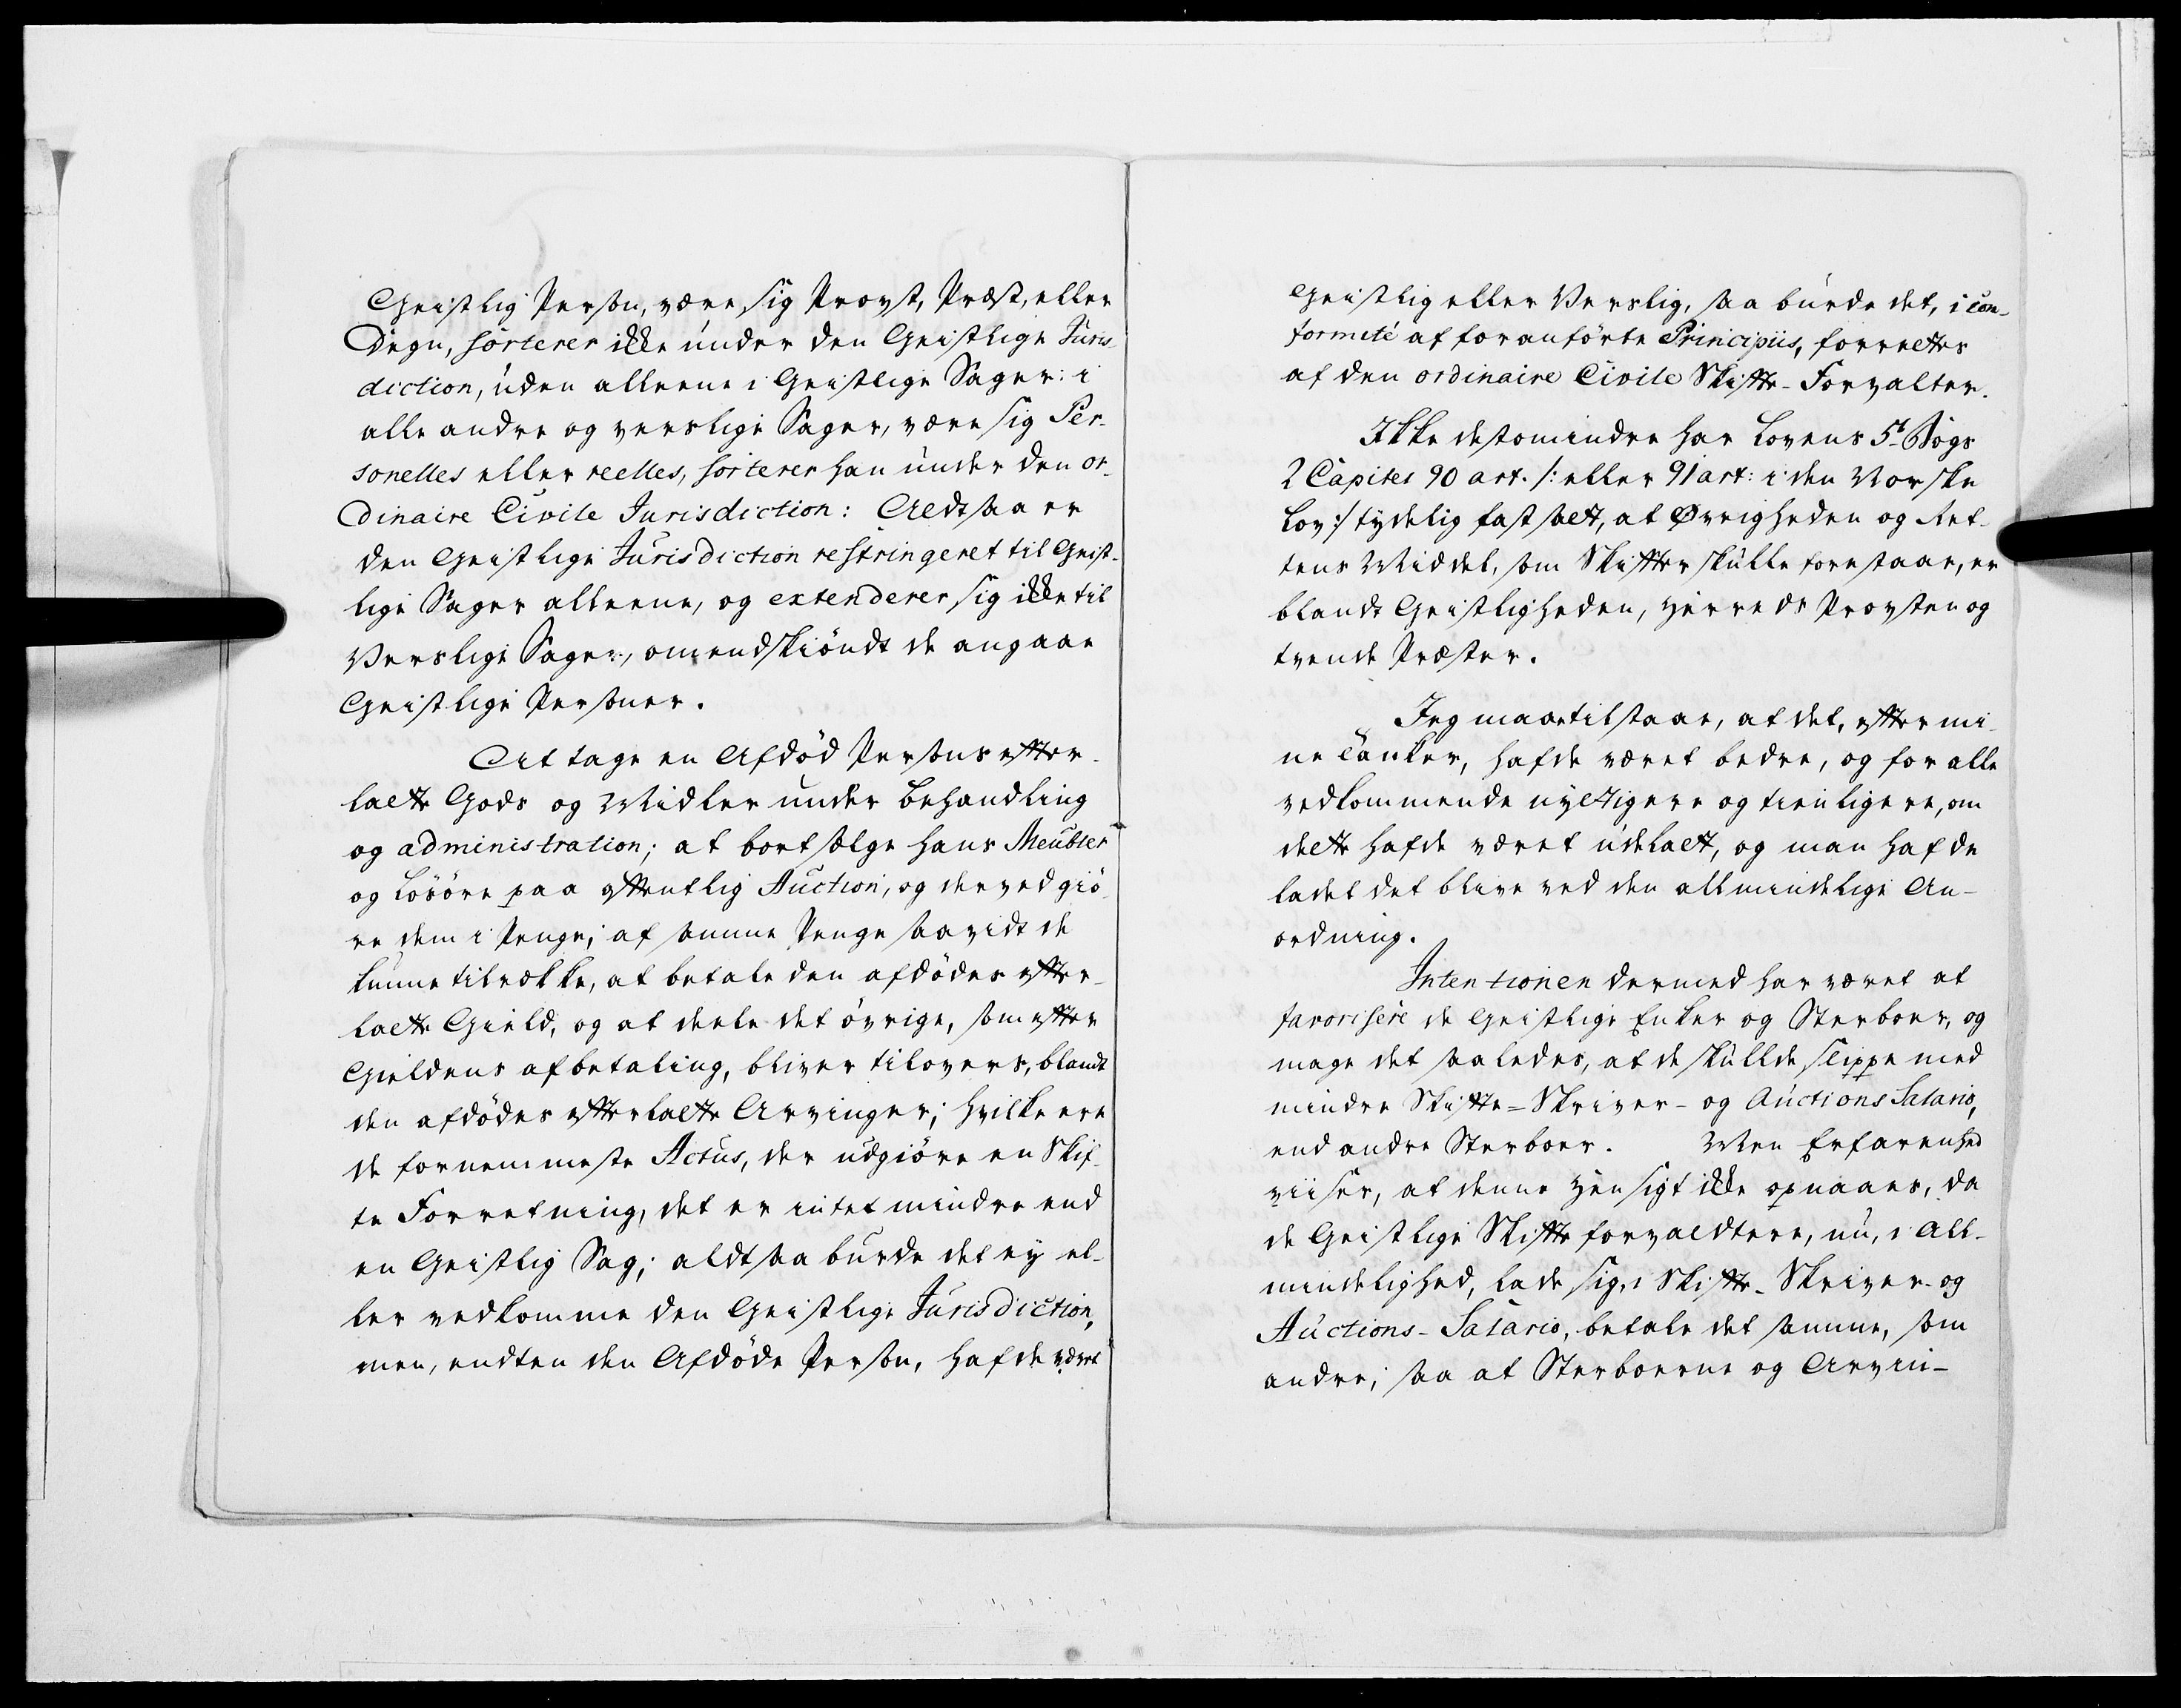 Geistlig Person, være sig Provst, Præst, eller
Degn, sorterer ikke under den Geistlige Juris-
diction, uden alleene i Geistlige Sager: i
alle andre og verslige Sager, være sig Per-
sonelles eller reelles, sorterer han under den or-
dinaire Civile Jurisdiction: Aldtsaa er
den Geistlige Jurisdiction restringeret til Geist-
lige Sager alleene, og extenderer sig ikke til
Verslige Sager, omendskiöndt de angaae
Geistlige Personer.
At tage en Afdöd Persons efter-
ladte Gods og Midler under Behandling
og administration; at bortsælge hans Meubler
og Lösöre paa offentlig Auction, og derved giö-
re dem i Penge; af samme Penge saavidt de
kunne tilrække, at betale den afdödes efter-
ladte Gield, og at deele det övrige, som efter
Gieldens afbetaling, bliver tilovers, blandt
den afdödes efterladte Arvinger; hvilke ere
de fornemmeste Actus, der udgiöre en Skif-
te Forretning, det er intet mindre end
en Geistlig Sag; aldtsaa burde det ey el-
ler vedkomme den Geistlige Jurisdiction,
men, endten den Afdöde Person, hafde været
Geistlig eller Verslig, saa burde det, i con-
formité af foranförte Principiis, forrettes
af den ordinaire Civile Skifte-Forvalter.
Ikke destomindre har Lovens 5t Bogs
2 Capitel 90 art. /: eller 91 art: i den Norske
Lov :/ tydelig fastsadt, at Øvrigheden og Ret-
tens Middel, som Skifter skulle forestaae, er
blandt Geistligheden, Herreds Provsten og
tvende Præster.
Jeg maae tilstaae, at det, efter mi-
ne Tanker, hafde været bedre, og for alle
vedkommende nyttigere og tienligere, om
dette hafde været udeladt, og man hafde
ladet det blive ved den allmindelige An-
ordning.
Intentionen dermed har været at
favorisere de Geistlige Enker og Sterboer, og
mage det saaledes, at de skullde slippe med
mindre Skifte-Skriver- og Auctions Salario,
end andre Sterboer. Men Erfarenhed
viiser, at denne Hensigt ikke opnaaes, da
de Geistlige Skifteforvaldtere, nu, i All-
mindelighed, lade sig, i Skifte-Skriver- og
Auctions-Salario, betale det samme, som
andre; saa at Sterboerne og Arvin-